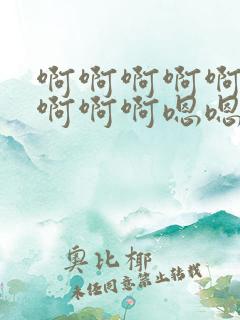 啊啊啊啊啊
啊啊啊嗯嗯
奥比椰
未经同意禁止转载